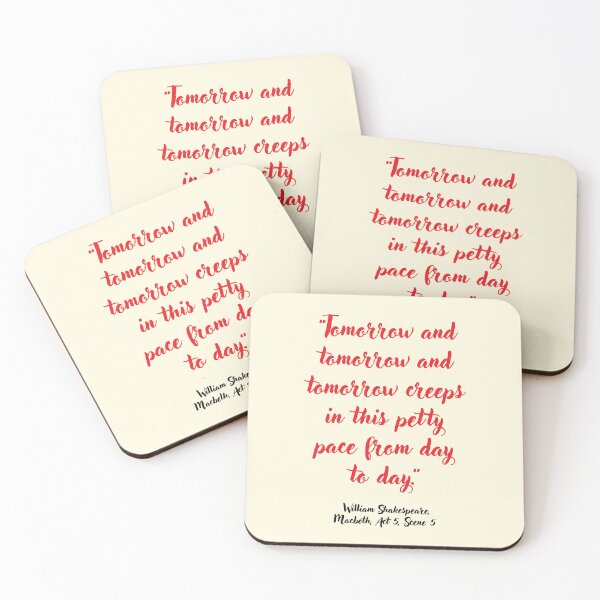 "Tomorrow and
tomorrow and
tomorrow creeps
petty
day
"Tomorrow and
tomorrow and
tomorrow creeps
in this petty
pace from day
to day."
"Tomorrow and
tomorrow and
tomorrow creeps
in this petty
pace from
to day."
William
Macbeth, Act
"Tomorrow and
tomorrow and
tomorrow creeps
in this petty
pace from day
to day."
William Shakespeare,
Macbeth, Act 5, Scene 5